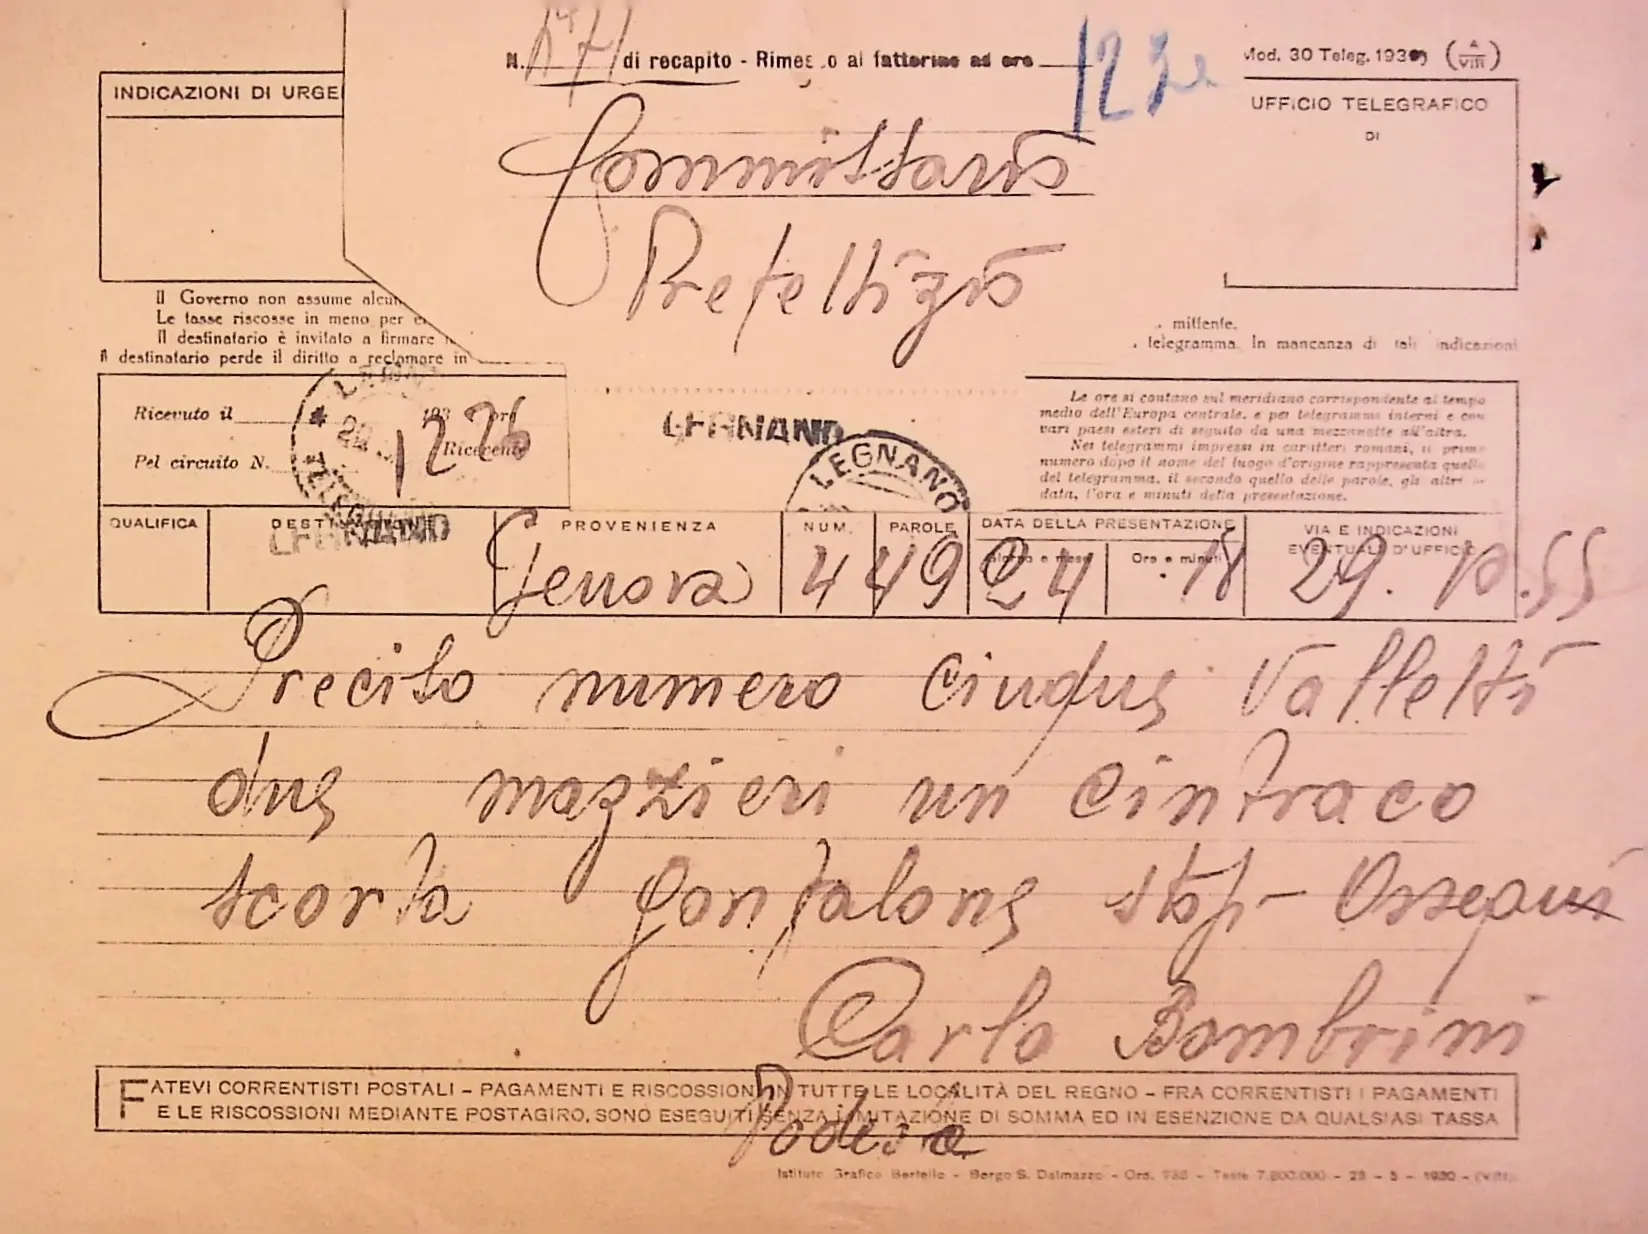 N. di recapito - Rimesso al fattorino ad ore 12
Mod. 30 Teleg. 1930 (A VIII)
INDICAZIONI DI URGE
UFFICIO TELEGRAFICO
DI
Commissario
Prefettizio
Il Governo non assume alcun
Le tasse riscosse in meno per e
Il destinatario è invitato a firmare
Il destinatario perde il diritto a reclamare in
mittente.
telegramma. In mancanza di tali indicazioni
Ricevuto il 193 ore
12 26
Pel circuito N. Ricevente
LEGNANO
LEGNANO
Le ore si contano sul meridiano corrispondente al tempo
medio dell'Europa centrale, e pei telegrammi interni e con
vari paesi esteri di seguito da una mezzanotte all'altra.
Nei telegrammi impressi in caratteri romani, il primo
numero dopo il nome del luogo d'origine rappresenta quello
del telegramma, il secondo quello delle parole, gli altri la
data, l'ora e minuti della presentazione.
QUALIFICA DESTINAZIONE PROVENIENZA NUM. PAROLE DATA DELLA PRESENTAZIONE VIA E INDICAZIONI
Giorno e mese Ore e minuti EVENTUALI D'UFFICIO
LEGNANO
Genova 4 49 24 18 29. 10.55
Preciso numero cinque Valletti
due mazzieri un cintraco
scorta gonfalone stop - Ossequi
Carlo Bombrini
Podestà
FATEVI CORRENTISTI POSTALI - PAGAMENTI E RISCOSSIONI IN TUTTE LE LOCALITÀ DEL REGNO - FRA CORRENTISTI I PAGAMENTI
E LE RISCOSSIONI MEDIANTE POSTAGIRO, SONO ESEGUITI SENZA LIMITAZIONE DI SOMMA ED IN ESENZIONE DA QUALSIASI TASSA
Istituto Grafico Bertello - Borgo S. Dalmazzo - Ord. - Teste 7.800.000 - 23 - 5 - 1930 - (VIII)